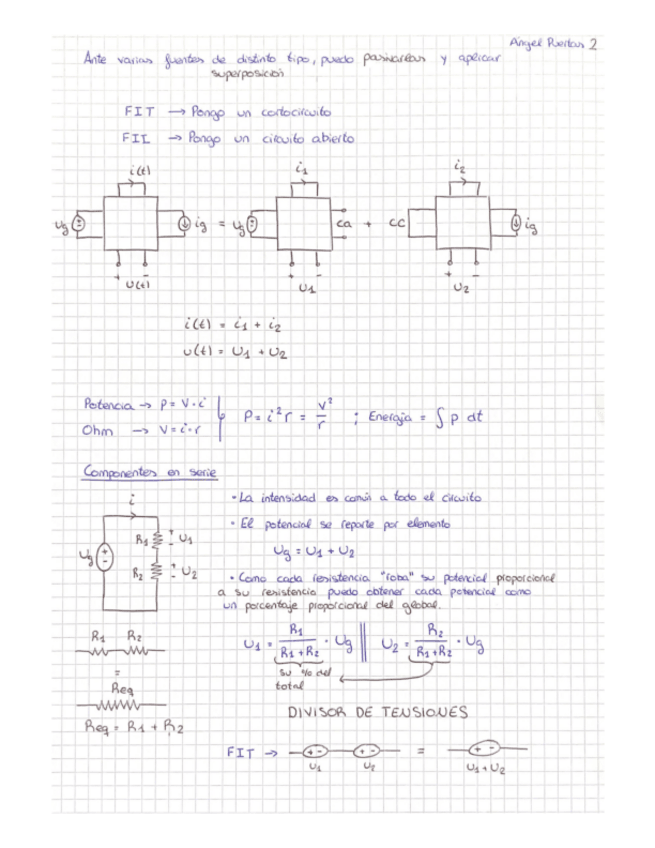 Ángel Puertas 2
Ante varias fuentes de distinto tipo, puedo pasivarlas y aplicar
superposición
FIT → Pongo un cortocircuito
FIL → Pongo un circuito abierto
i(t) i1 i2
ug ig = ug ca + cc ig
+ - + - + -
u(t) u1 u2
i(t) = i1 + i2
u(t) = u1 + u2
Potencia → P = V · i
Ohm → V = i · r
P = i²r = v²/r ; Energía = ∫ p dt
Componentes en serie
i
ug + - R1 + - u1
R2 + - u2
• La intensidad es común a todo el circuito
• El potencial se reparte por elemento
ug = u1 + u2
• Como cada resistencia "roba" su potencial proporcional
a su resistencia puedo obtener cada potencial como
un porcentaje proporcional del global.
R1 R2
=
Req
Req = R1 + R2
u1 = R1/(R1+R2) · ug || u2 = R2/(R1+R2) · ug
su % del
total
DIVISOR DE TENSIONES
FIT → + - + - = + -
u1 u2 u1+u2